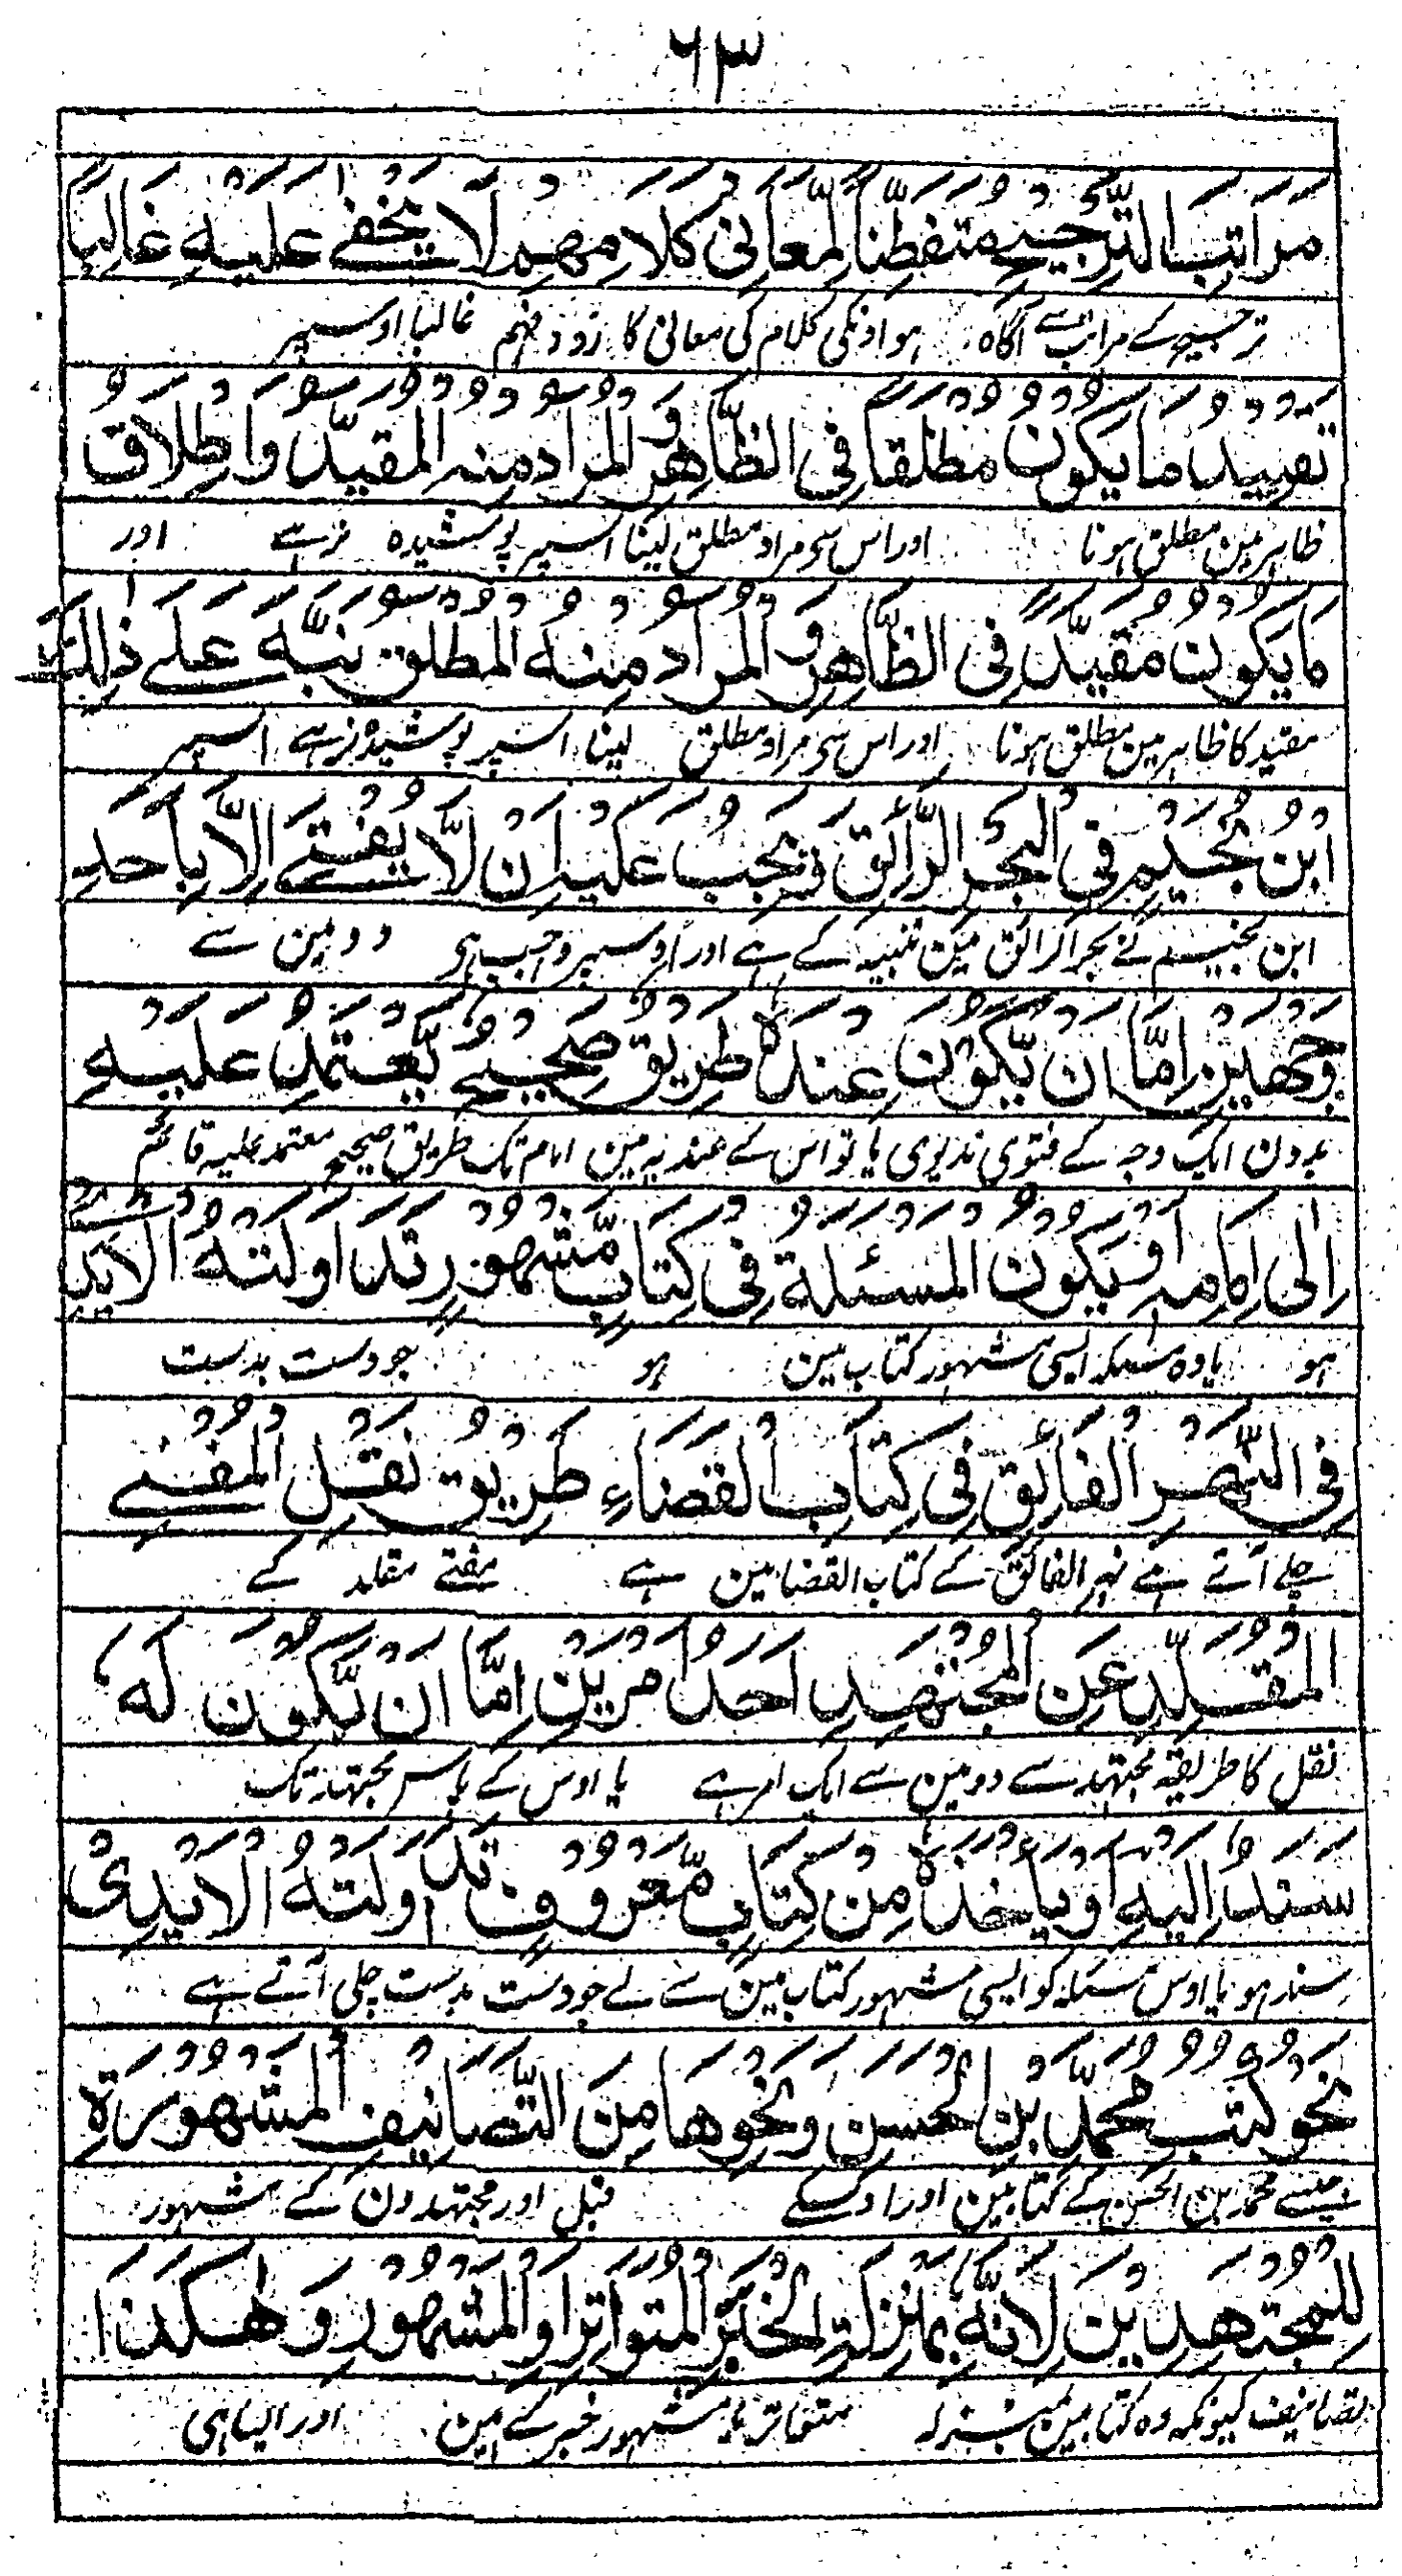 ٦٣
مَرَاتِبَ التَّرْجِيْحِ مُتَفَطِّنًا لِّمَعَانِيْ كَلَامِهِمْ لَا يَخْفٰے عَلَيْهِ غَالِبًا
ترجیح کے مراتب سے آگاہ ہو اونکی کلام کی معانی کا زود فہم غالبا اوسپر
تَقْيِيْدُ مَا يَكُوْنُ مُطْلَقًا فِي الظَّاهِرِ وَالْمُرَادُ مِنْهُ الْمُقَيَّدُ وَاِطْلَاقُ
ظاہر مین مطلق ہونا اور اس سی مراد مطلق لینا اسپر پوشیدہ نرہے اور
مَا يَكُوْنُ مُقَيَّدًا فِى الظَّاهِرِ وَالْمُرَادُ مِنْهُ الْمُطْلَقُ نَبَّهَ عَلٰے ذٰلِكَ
مقید کا ظاہر مین مطلق ہونا اور اس سی مراد مطلق لینا اسپر پوشیدہ نرہے اسپر
ابْنُ نُجَيْمٍ فِي الْبَحْرِ الرَّائِقِ وَيَجِبُ عَلَيْهِ اَنْ لَّا يُفْتِيَ اِلَّا بِاَحَدِ
ابن نجیم نے بحر الرائق مین تنبیہ کے ہے اور اوسپر واجب ہی دو مین سے
وَجْهَيْنِ اِمَّا اَنْ يَّكُوْنَ عِنْدَهٗ طَرِيْقٌ صَحِيْحٌ يَّعْتَمِدُ عَلَيْهِ
بدون ایک وجہ کے فتوی ندیوی یا تو اس کے عندیہ مین امام تک طریق صحیح معتمد علیہ قائم
اِلٰى اِمَامِهٖ اَوْ يَكُوْنَ الْمَسْئَلَةُ فِيْ كِتَابٍ مَّشْهُوْرٍ تَدَاوَلَتْهُ الْاَيْدِيْ
ہو یا وہ مسئلہ ایسی مشہور کتاب مین ہو جو دست بدست
فِي النَّهْرِ الْفَائِقِ فِيْ كِتَابِ الْقَضَاءِ طَرِيْقُ نَقْلِ الْمُفْتِيْ
چلے آتے ہے نہر الفائق کے کتاب القضا مین ہے مفتے مقلد کے
الْمُقَلِّدِ عَنِ الْمُجْتَهِدِ اَحَدُ اَمْرَيْنِ اِمَّا اَنْ يَّكُوْنَ لَهٗ
نقل کا طریقہ مجتہد سے دو مین سے ایک امر ہے یا اوس کے پاس مجتہد تک
سَنَدٌ اِلَيْهِ اَوْ يَاْخُذَهٗ مِنْ كِتَابٍ مَّعْرُوْفٍ تَدَاوَلَتْهُ الْاَيْدِىْ
سند ہو یا اوس مسئلہ کو ایسی مشہور کتاب مین سے لے جو دست بدست چلی آتے ہے
نَحْوُ كُتُبِ مُحَمَّدِ بْنِ الْحَسَنِ وَنَحْوِهَا مِنَ التَّصَانِيْفِ الْمَشْهُوْرَةِ
جیسے محمد بن الحسن کے کتابین اور اوسکے قبل اور مجتہدون کے مشہور
لِلْمُجْتَهِدِيْنَ لِاَنَّهٗ بِمَنْزِلَةِ الْخَبَرِ الْمُتَوَاتِرِ اَوِ الْمَشْهُوْرِ وَهٰكَذَا
تصانیف کیونکہ وہ کتابین بمنزلہ متواتر یا مشہور خبر کے ہین اور ایسا ہی